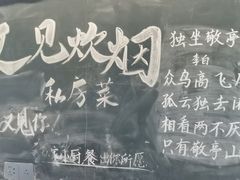 又见炊烟
私房菜
又见你!
餐出你所愿
独坐敬亭
李白
众鸟高飞
孤云独去
相看两不厌
只有敬亭山